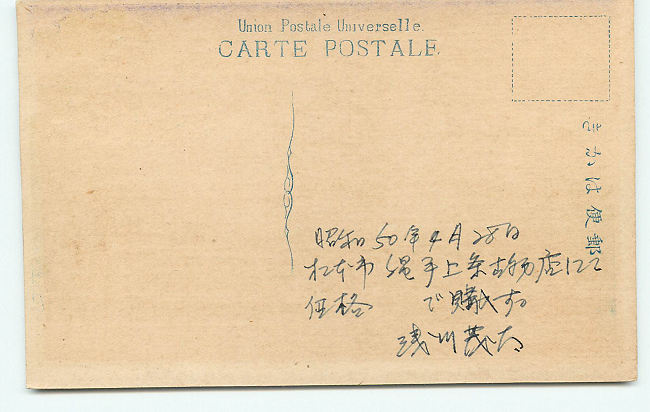 Union Postale Universelle.
CARTE POSTALE
きかは便郵
昭和50年4月28日
松本市縄手上条古物店にて
価格 で購入す。
浅川茂太